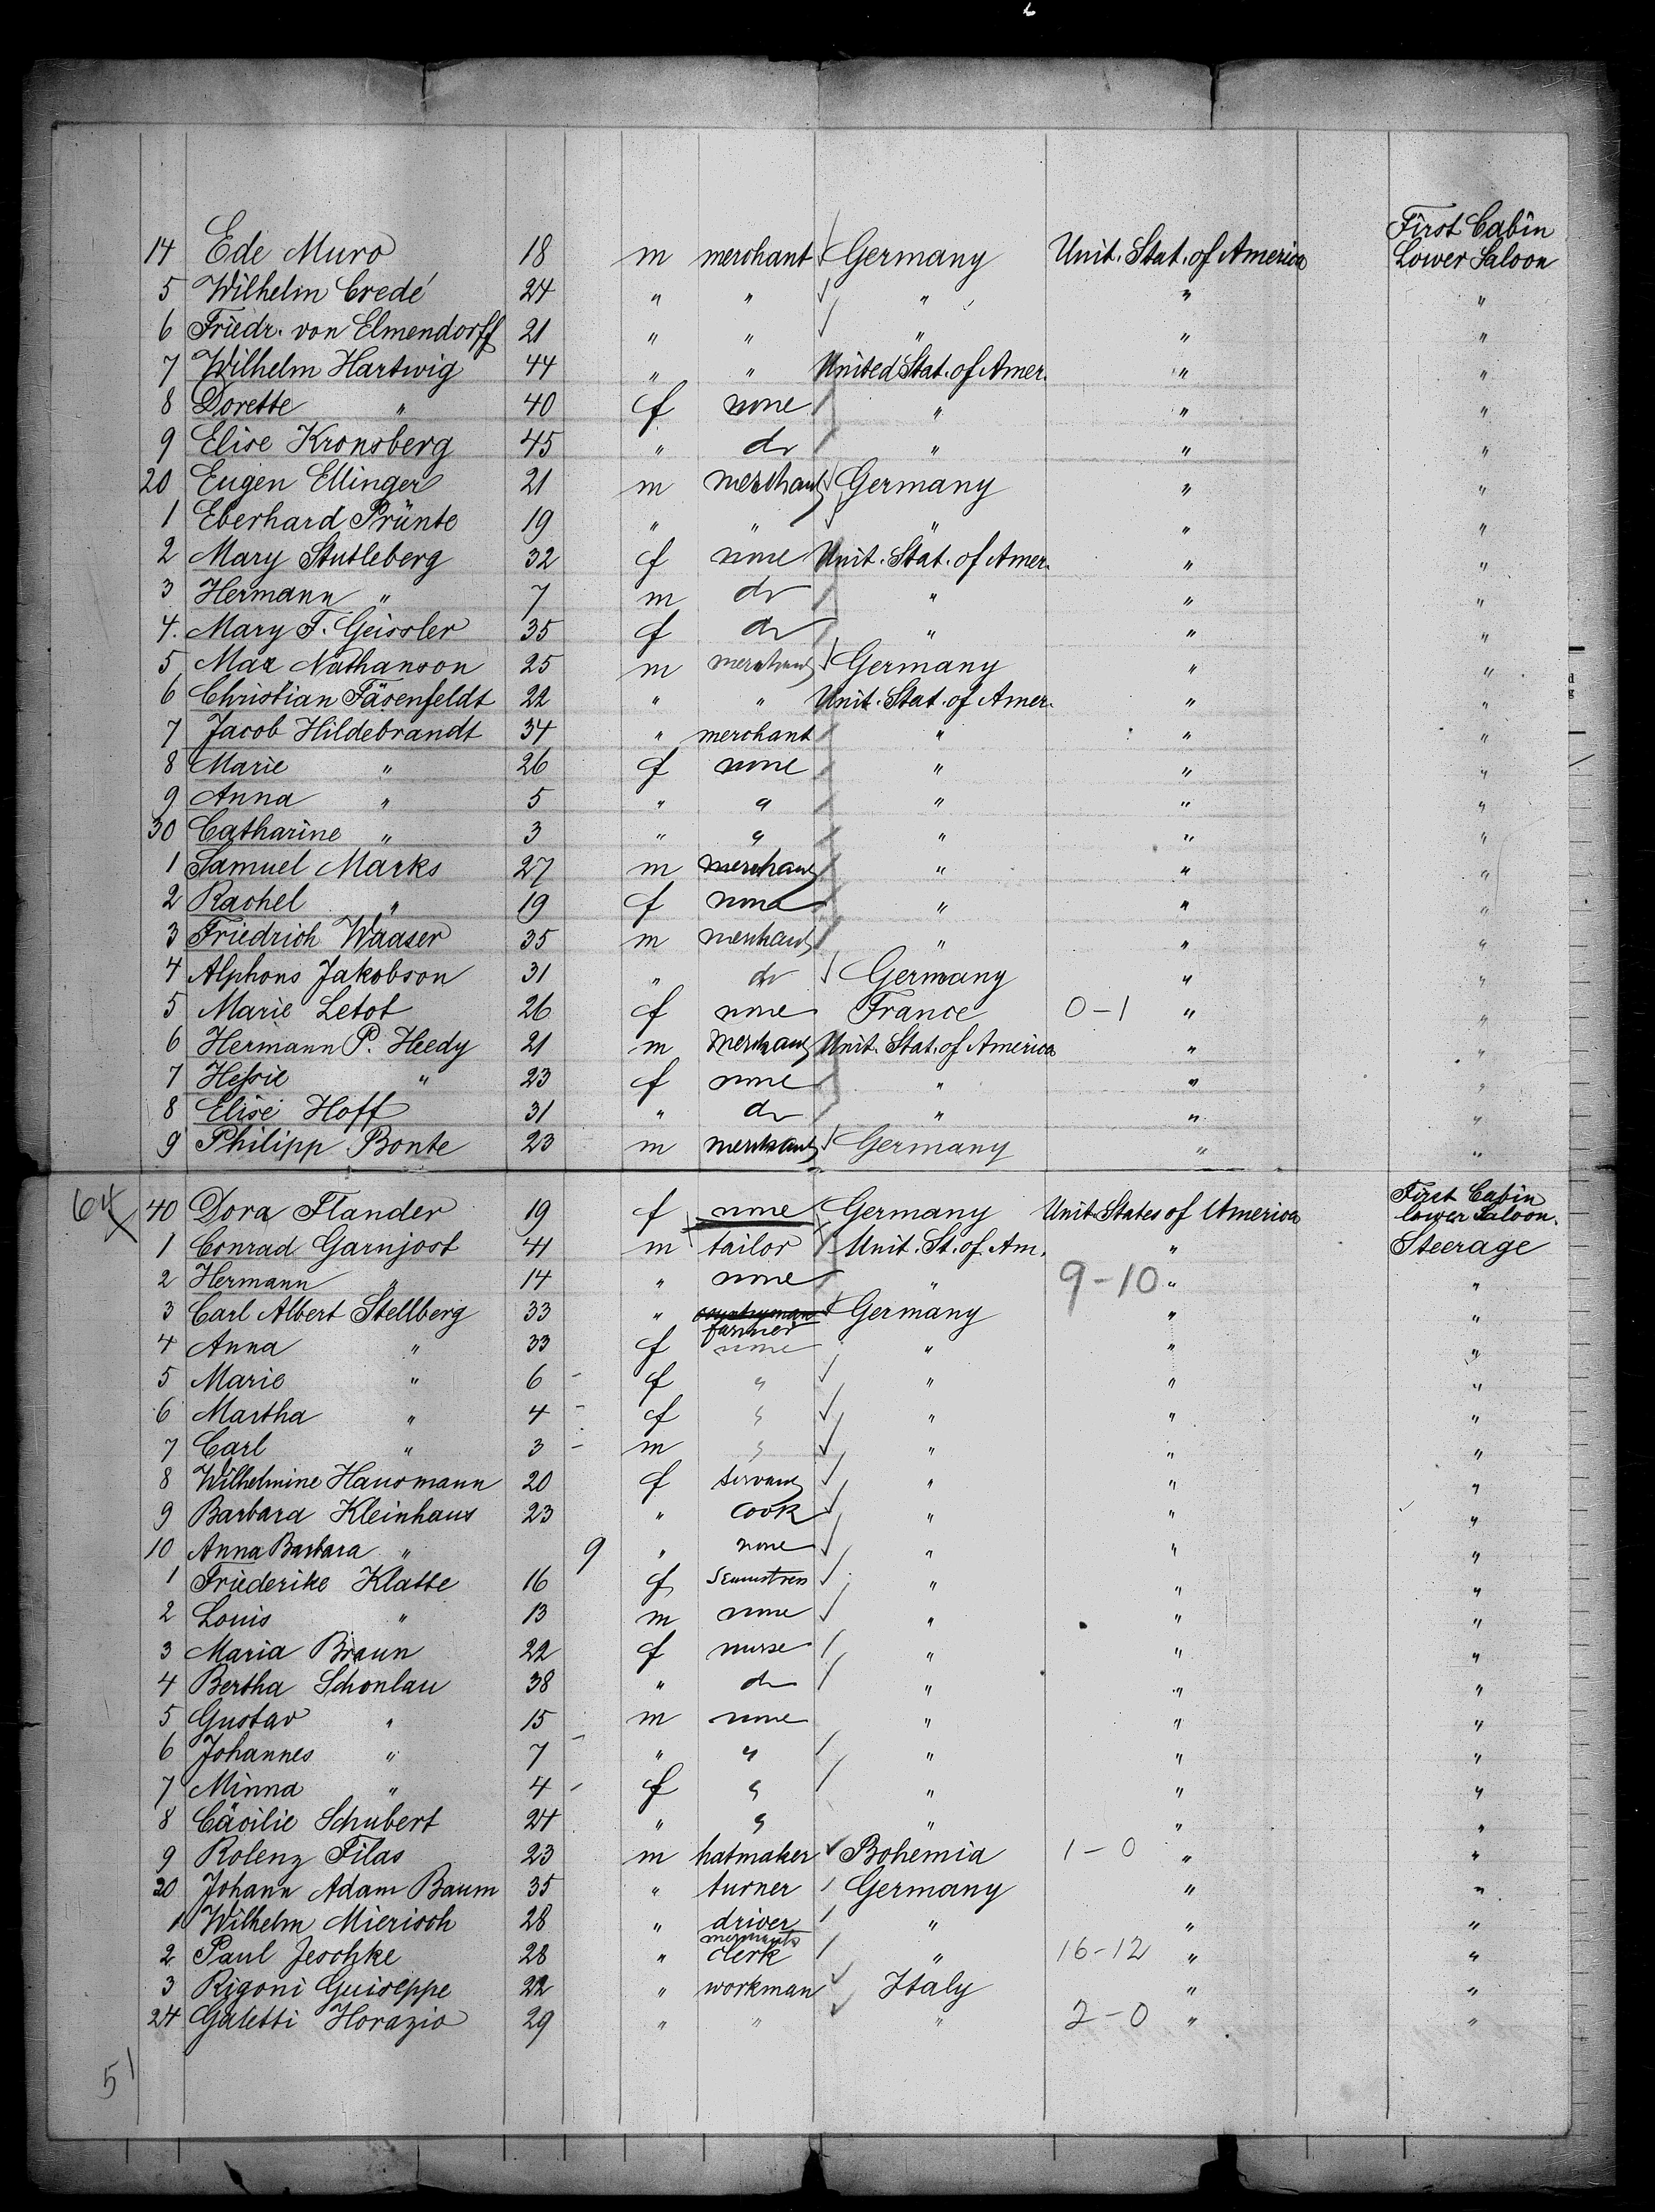 First Cabin
14 Ede Muro 18 m merchant Germany Unit. Stat. of America Lower Saloon
5 Wilhelm Credé 24 " " " " "
6 Friedr. von Elmendorff 21 " " " " "
7 Wilhelm Hartwig 44 " " United Stat. of Amer. " "
8 Dorette " 40 f none " " "
9 Elise Kronsberg 45 " do " " "
20 Eugen Ellinger 21 m merchant Germany " "
1 Eberhard Prünte 19 " " " " "
2 Mary Stutleberg 32 f none Unit. Stat. of Amer. " "
3 Hermann " 7 m do " " "
4. Mary F. Geissler 35 f do " " "
5 Max Nathanson 25 m merchant Germany " "
6 Christian Fäsenfeldt 22 " " Unit. Stat. of Amer. " "
7 Jacob Hildebrandt 34 " merchant " " "
8 Marie " 26 f none " " "
9 Anna " 5 " " " " "
30 Catharine " 3 " " " " "
1 Samuel Marks 27 m merchant " " "
2 Rachel " 19 f none " " "
3 Friedrich Waaser 35 m merchant " " "
4 Alphons Jakobson 31 " do Germany " "
5 Marie Letot 26 f none France 0-1 " "
6 Hermann P. Heedy 21 m merchant Unit. Stat. of America " "
7 Hessie " 23 f none " " "
8 Elise Hoff 31 " do " " "
9 Philipp Bonte 23 m merchant Germany " "
First Cabin
64 40 Dora Flander 19 f none Germany Unit. States of America lower Saloon.
1 Conrad Garnjost 41 m tailor Unit. St. of Am. " Steerage
2 Hermann " 14 " none " 9-10 " "
3 Carl Albert Stellberg 33 " countryman Germany " "
farmer
4 Anna " 33 f none " " "
5 Marie " 6 - f " " " "
6 Martha " 4 - f " " " "
7 Carl " 3 - m " " " "
8 Wilhelmine Hausmann 20 f servant " " "
9 Barbara Kleinhaus 23 " cook " " "
10 Anna Barbara " 9 " none " " "
1 Friederike Klatte 16 f Seamstress " " "
2 Louis " 13 m none " " "
3 Maria Braun 22 f nurse " " "
4 Bertha Schonlau 38 " do " " "
5 Gustav " 15 m none " " "
6 Johannes " 7 - " " " " "
7 Minna " 4 - f " " " "
8 Cäcilie Schubert 24 " " " " "
9 Rolenz Filas 23 m hatmaker Bohemia 1-0 " "
20 Johann Adam Baum 35 " turner Germany " "
1 Wilhelm Mierisch 28 " driver " " "
merchants
2 Paul Jeschke 28 " clerk " 16-12 " "
3 Rigoni Guiseppe 22 " workman Italy " "
24 Galetti Horazio 29 " " " 2-0 " "
51